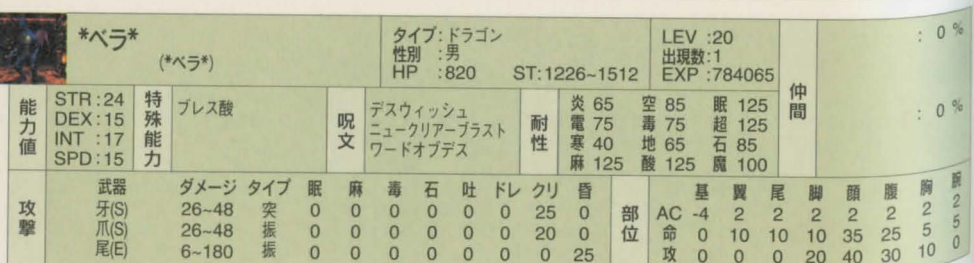 *ベラ*
(*ベラ*)
タイプ:ドラゴン
性別 :男
HP :820 ST:1226~1512
LEV :20
出現数:1
EXP :784065
仲間
: 0 %
: 0 %
能力値
STR:24
DEX:15
INT :17
SPD:15
特殊能力
ブレス酸
呪文
デスウィッシュ
ニュークリアーブラスト
ワードオブデス
耐性
炎 65 空 85 眠 125
電 75 毒 75 超 125
寒 40 地 65 石 85
麻 125 酸 125 魔 100
攻撃
武器 ダメージ タイプ 眠 麻 毒 石 吐 ドレ クリ 昏
牙(S) 26~48 突 0 0 0 0 0 0 25 0
爪(S) 26~48 振 0 0 0 0 0 0 20 0
尾(E) 6~180 振 0 0 0 0 0 0 0 25
部位
基 翼 尾 脚 頭 腹 胸 腕
AC -4 2 2 2 2 2 2 2
命 0 10 10 10 35 25 5 5
攻 0 0 0 20 40 30 10 0